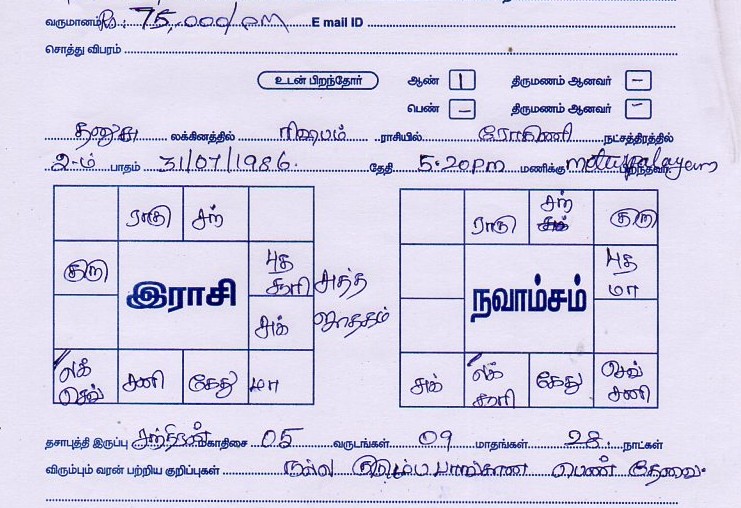 வருமானம் Rs. 75,000/pm E mail ID
சொத்து விபரம்
உடன் பிறந்தோர் ஆண் 1 திருமணம் ஆனவர் -
பெண் - திருமணம் ஆனவர் -
தனுசு லக்கினத்தில் ரிஷபம் ராசியில் ரோகிணி நட்சத்திரத்தில்
2-ம் பாதம் 31/07/1986. தேதி 5:20pm மணிக்கு mettupalayam பிறந்தவர்.
ராகு சந்
குரு இராசி புத சூரி சுத்த
சுக் ஜாதகம்
லக் செவ் சனி கேது மா
ராகு சந் குரு
நவாம்சம் புத மா
சுக் லக் சூரி கேது செவ் சனி
தசாபுத்தி இருப்பு சந்திரன் மகாதிசை 05 வருடங்கள் 09 மாதங்கள் 28 நாட்கள்
விரும்பும் வரன் பற்றிய குறிப்புகள் நல்ல குடும்ப பாங்கான பெண் தேவை.